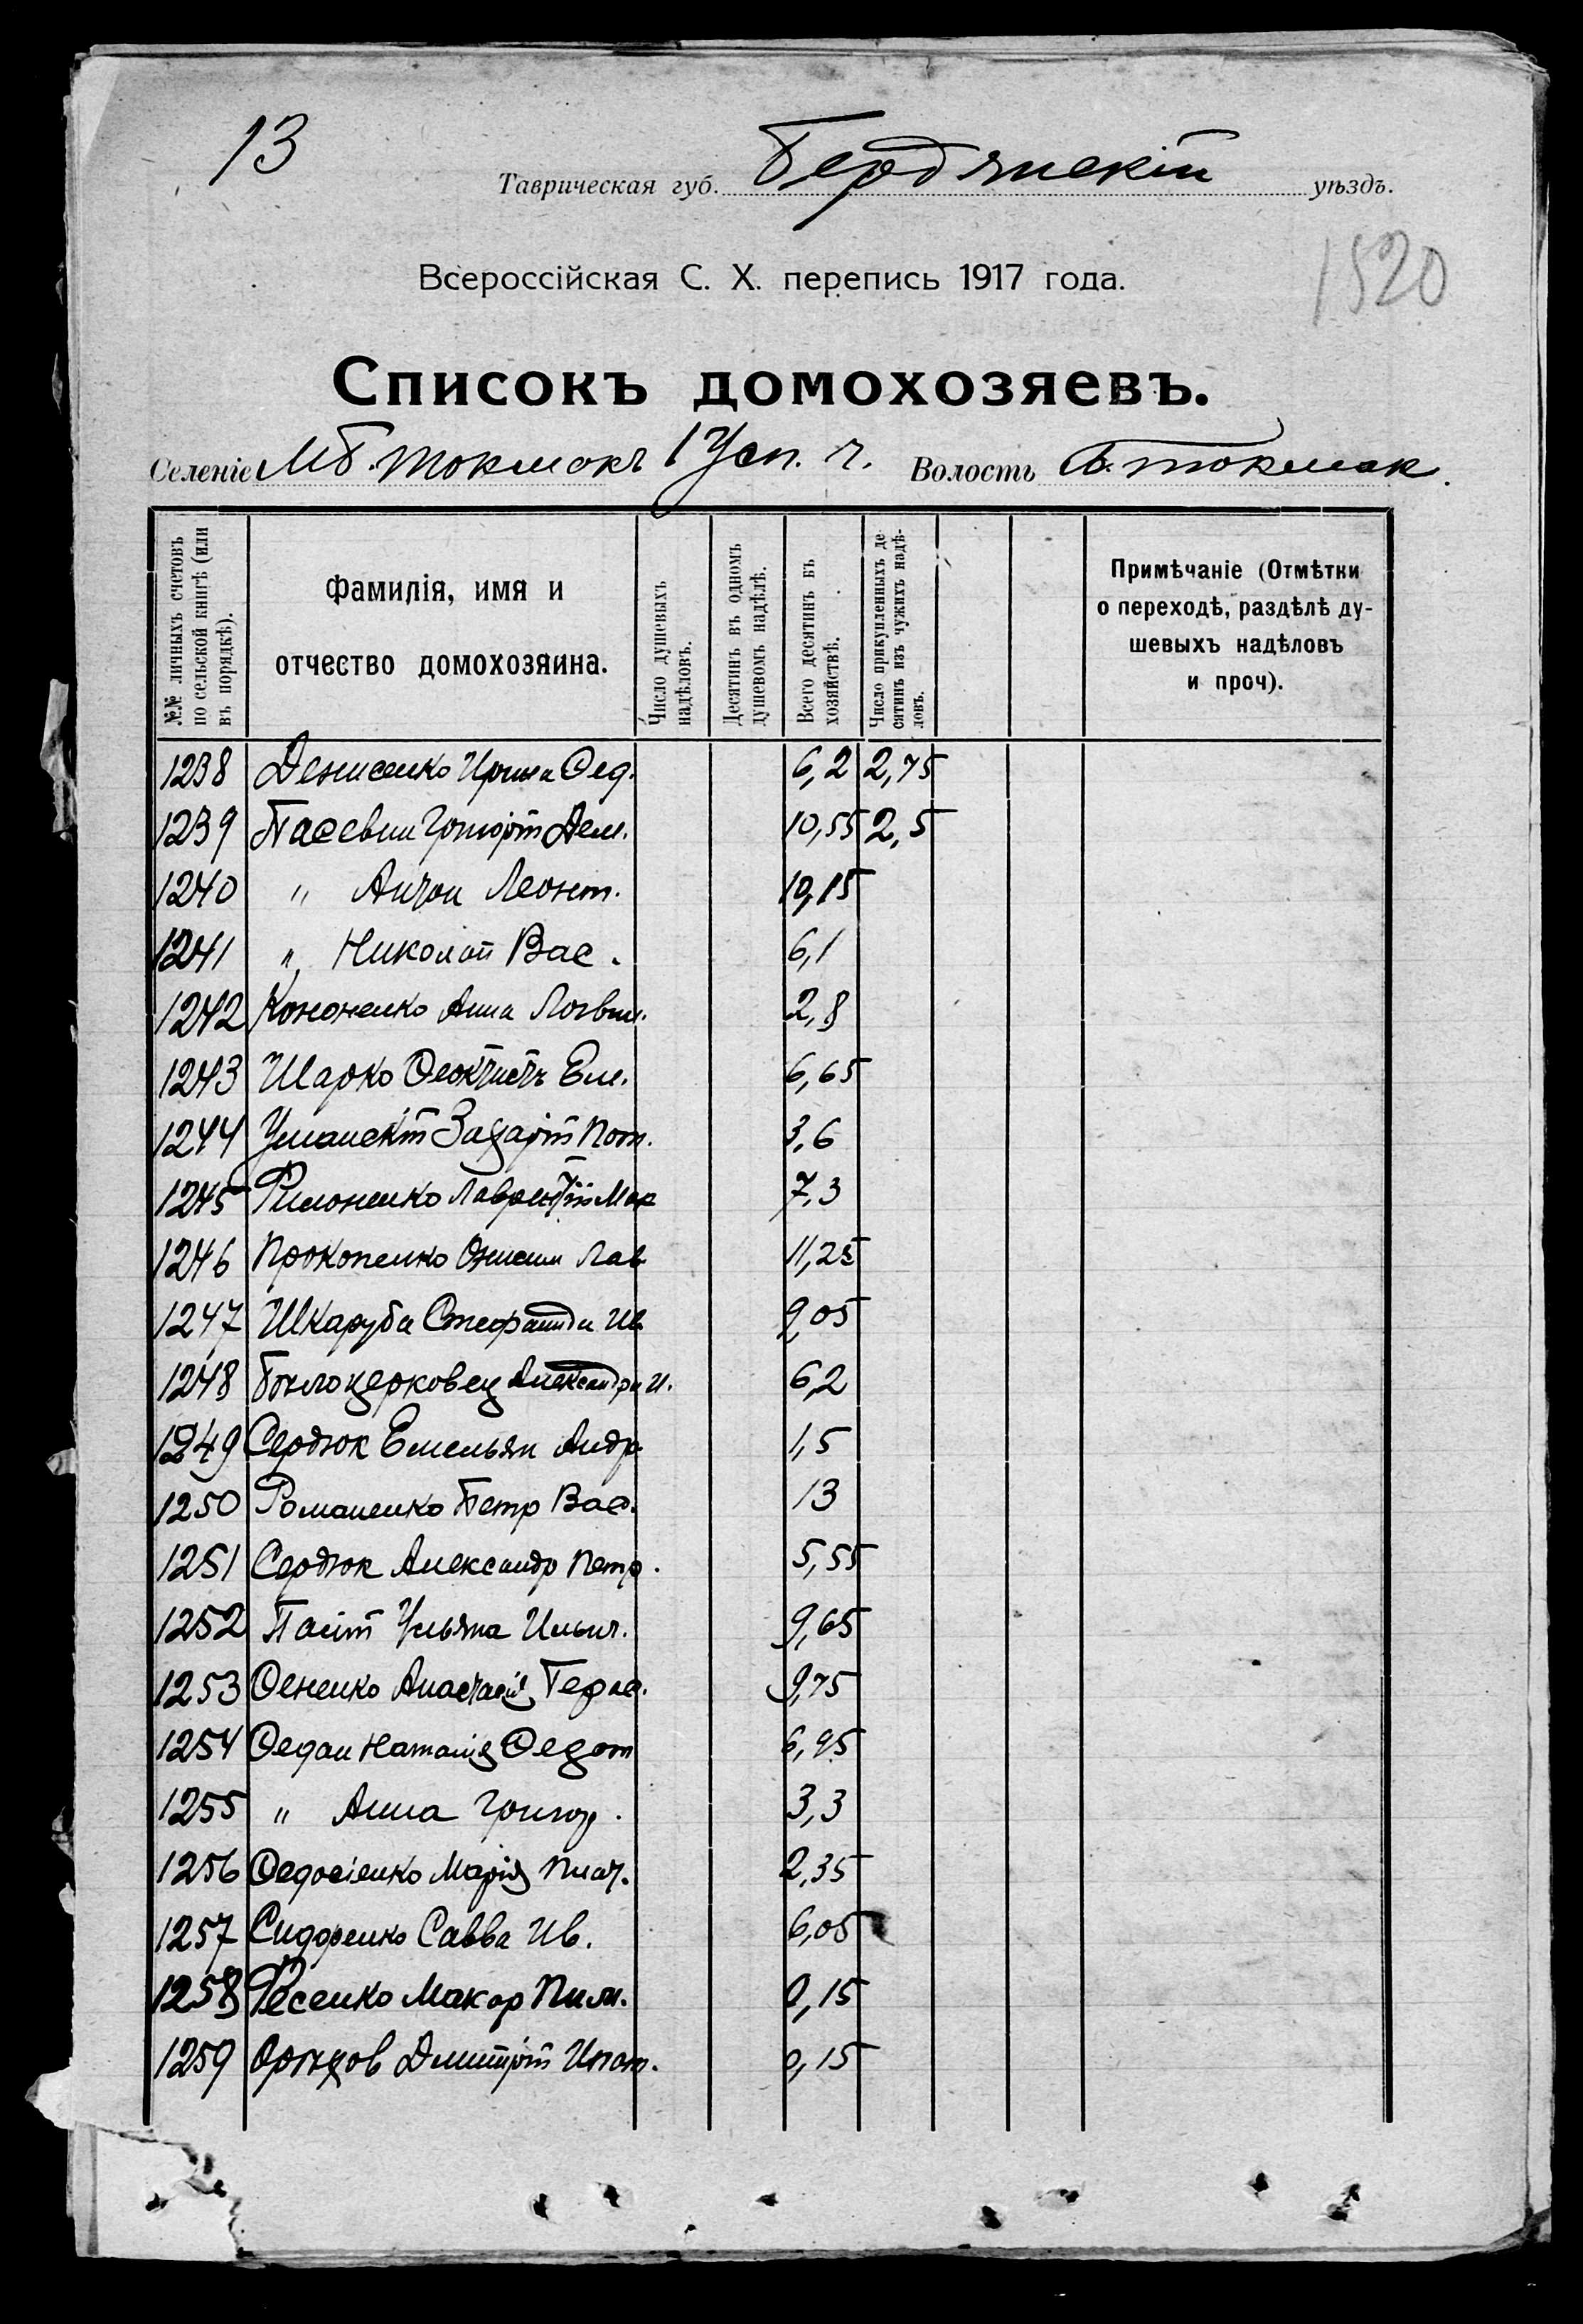 13
Таврическая губ. Бердянскій уѣздъ.
1520
Всероссійская С. Х. перепись 1917 года.
Списокъ домохозяевъ.
Селеніе Мѣ. Токмокъ 1 Усп. ч. Волость Б. Токмак.
№№ личныхъ счетовъ по сельской книгѣ (или въ порядкѣ).
Фамилія, имя и отчество домохозяина.
Число душевыхъ надѣловъ.
Десятинъ въ одномъ душевомъ надѣлѣ.
Всего десятинъ въ хозяйствѣ.
Число прикупленныхъ десятинъ изъ чужихъ надѣловъ.
Примѣчаніе (Отмѣтки о переходѣ, раздѣлѣ душевыхъ надѣловъ и проч).
1238 Денисенко Ирина Ѳед. 6,2 2,75
1239 Пасевин Григорій Дем. 10,55 2,5
1240 " Антон Леонт. 10,15
1241 " Николай Вас. 6,1
1242 Кононенко Анна Логвин. 2,8
1243 Шарко Ѳеоктистъ Ем. 6,65
1244 Уманскій Захарій Пот. 3,6
1245 Филоненко Лаврентій Мак 7,3
1246 Прокопенко Онисим Лав 11,25
1247 Шкаруба Стефанида Ив 9,05
1248 Бѣлоцерковец Александра И. 6,2
1249 Сердюк Емельян Андр. 1,5
1250 Романенко Петр Вас. 13
1251 Сердюк Александр Петр. 5,55
1252 Палій Ульяна Ильин. 9,65
1253 Ѳененко Анастасія Герас. 9,75
1254 Ѳедан Наталія Ѳедот 6,95
1255 " Анна Григор. 3,3
1256 Ѳедосіенко Марія Игнат. 2,35
1257 Сидоренко Савва Ив. 6,05
1258 Фесенко Макар Пим. 0,15
1259 Дмитрій Ипат. 0,15